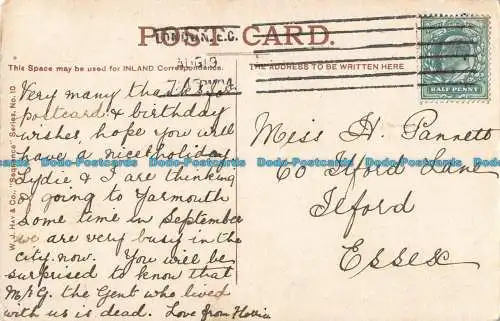 POST CARD.
LONDON, E.C.
AUG 19
This Space may be used for INLAND Correspondence.
THE ADDRESS TO BE WRITTEN HERE
HALF PENNY
W. J. HAY & Co., "Sequence" Series, No. 10
Very many thanks for
postcard & birthday
wishes, hope you will
have a nice holiday
Lydie & I are thinking
of going to Yarmouth
some time in September
we are very busy in the
city now. You will be
surprised to know that
the Gent who lived
with us is dead. Love from
Miss H. Pannett
60 Ilford Lane
Ilford
Essex
Dodo-Postcards Dodo-Postcards Dodo-Postcards Dodo-Postcards Dodo-Postcards